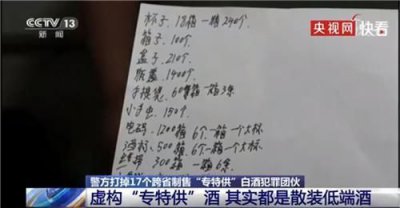 CCTV 13
新闻
央视网
快看
杯子 18箱一箱240个
箱子 100个
盒子 210个
瓶盖 1400个
手提袋 60
箱一箱
小 150个
1200箱 6个一箱 一个大标
500箱 6个一箱 一个大标
300 箱 一箱6条
警方打掉17个跨省制售“专特供”白酒犯罪团伙
虚构“专特供”酒 其实都是散装低端酒